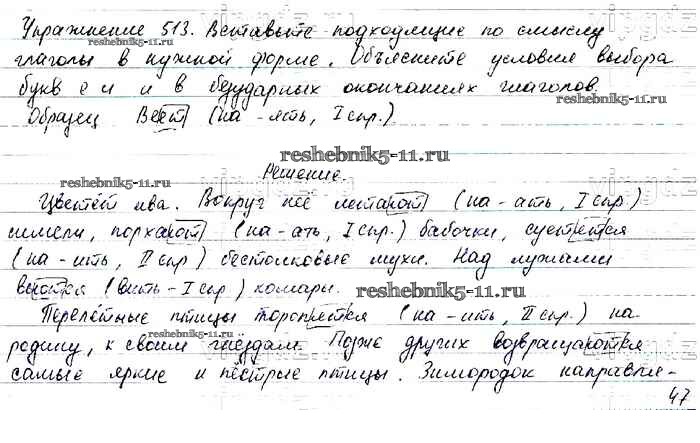 Упражнение 513. Вставьте подходящие по смыслу
глаголы в нужной форме. Объясните условия выбора
букв е и и в безударных окончаниях глаголов.
Образец. Веет (на -ять, I спр.)
reshebnik5-11.ru
Решение.
Цветёт ива. Вокруг неё летают (на -ать, I спр.)
шмели, порхают (на -ать, I спр.) бабочки, суетятся
(на -ить, II спр) бестолковые мухи. Над лужами
вьются (вить - I спр.) комары. reshebnik5-11.ru
Перелётные птицы торопятся (на -ить, II спр.) на
родину, к своим гнёздам. Позже других возвращаются
самые яркие и пёстрые птицы. Зимородок направля-
47